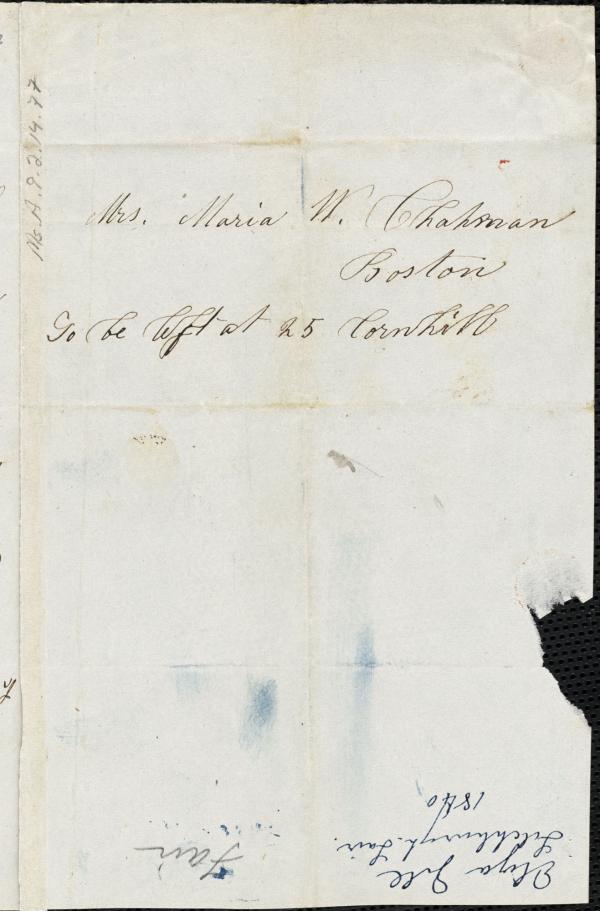 Ms. A. 9. 2. 14. 77
Mrs. Maria W. Chapman
Boston
To be left at 25 Cornhill
Eliza Gill
Fitchburgh Fair.
1840
Fair